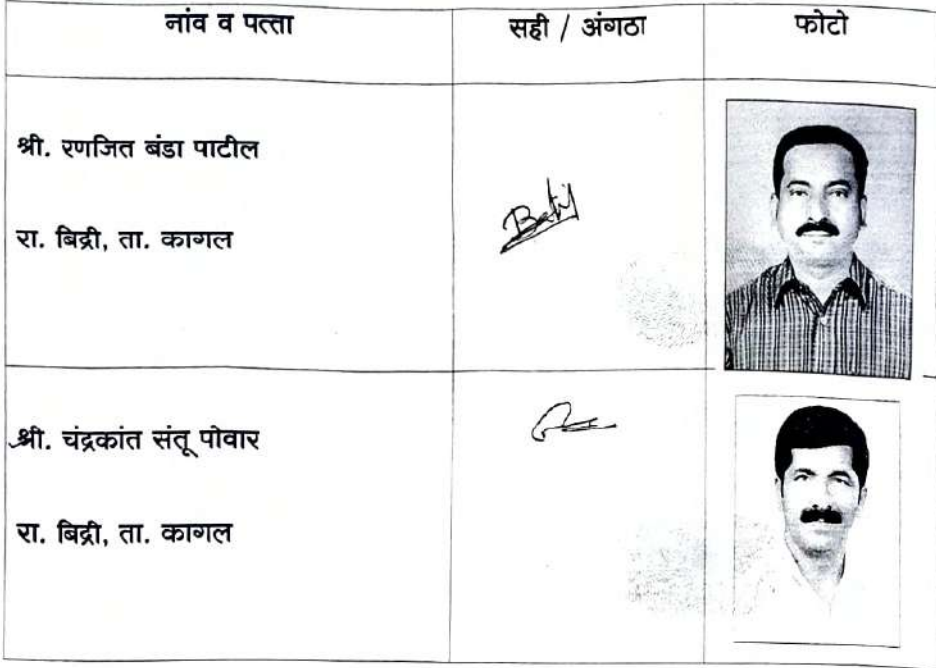 नांव व पत्ता सही / अंगठा फोटो
श्री. रणजित बंडा पाटील
रा. बिद्री, ता. कागल
श्री. चंद्रकांत संतू पोवार
रा. बिद्री, ता. कागल